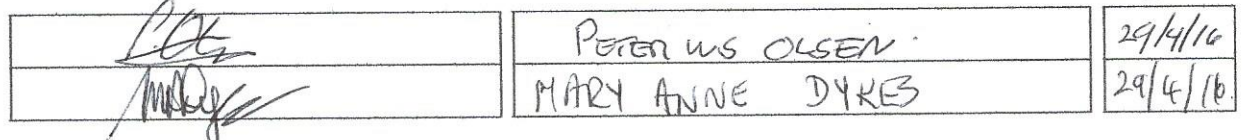 PETER WS OLSEN. 29/4/16
MARY ANNE DYKES 29/4/16.